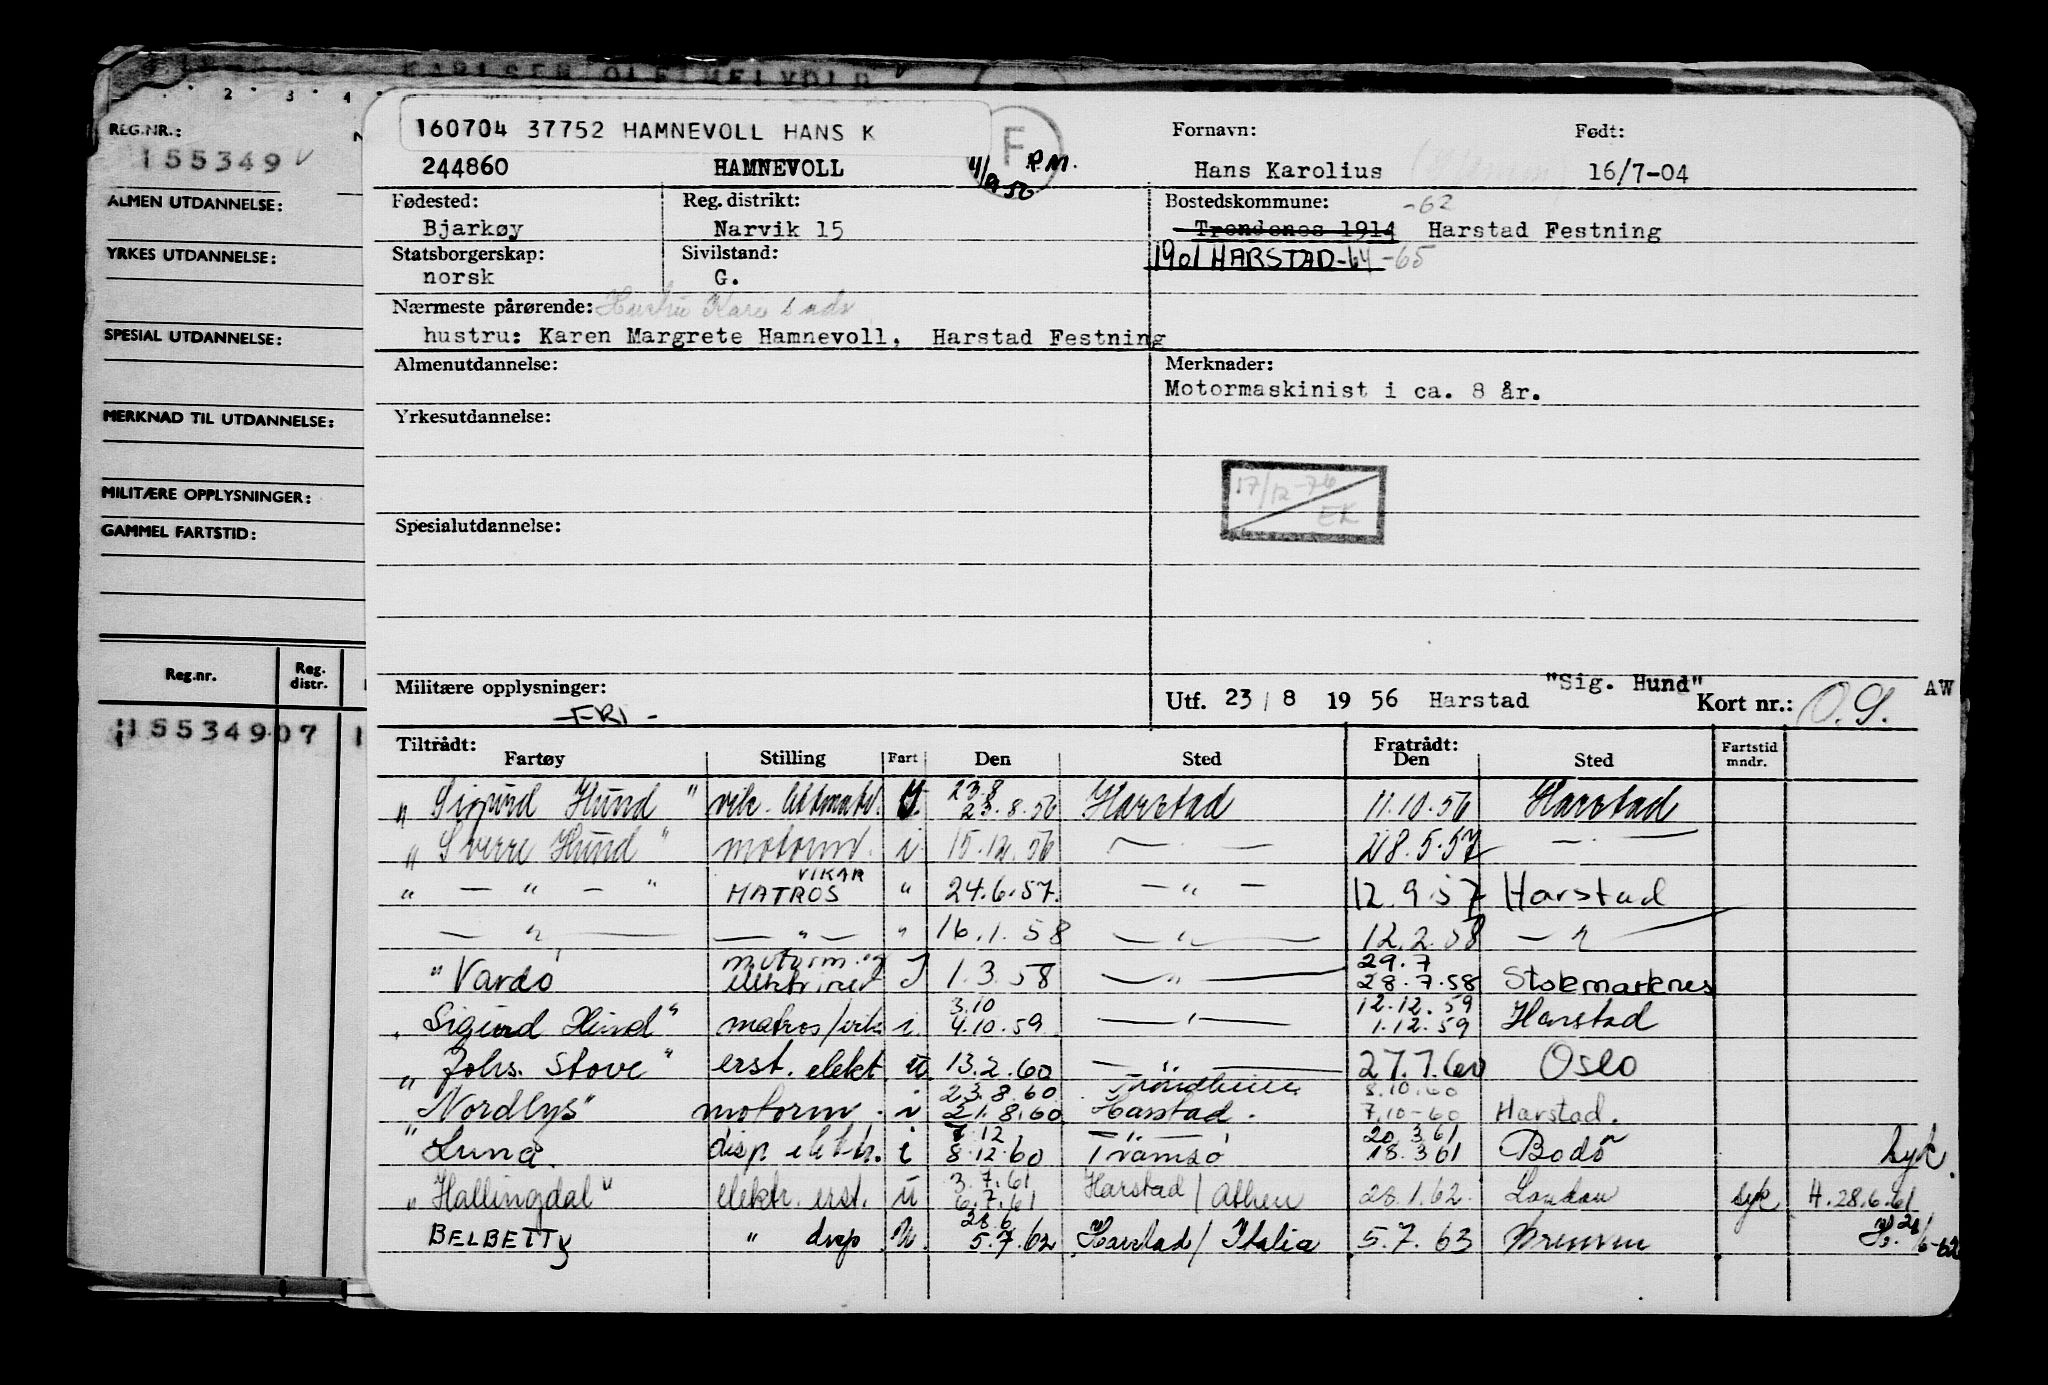 KARLSEN OLE
2 3 4
REG.NR.:
155349 V
ALMEN UTDANNELSE:
YRKES UTDANNELSE:
SPESIAL UTDANNELSE:
MERKNAD TIL UTDANNELSE:
MILITÆRE OPPLYSNINGER:
GAMMEL FARTSTID:
Reg.nr. Reg. distr.
155349 07 1
160704 37752 HAMNEVOLL HANS K
F
244860 HAMNEVOLL P.M.
Fornavn: Født:
Hans Karolius 16/7-04
Fødested: Reg. distrikt: Bostedskommune: -62
Bjarkøy Narvik 15 Trondenes 1914 Harstad Festning
Statsborgerskap: Sivilstand: 1901 HARSTAD-64-65
norsk G.
Nærmeste pårørende:
hustru: Karen Margrete Hamnevoll, Harstad Festning
Almenutdannelse: Merknader:
Motormaskinist i ca. 8 år.
Yrkesutdannelse:
17/12-74
EK
Spesialutdannelse:
Militære opplysninger: "Sig. Hund" AW
-FRI- Utf. 23/8 1956 Harstad Kort nr.: O.S.
Tiltrådt: Fratrådt: Fartstid
Fartøy Stilling Fart Den Sted Den Sted mndr.
23.8
"Sigurd Hund" vik. lettmatr. I. 23.8.56 Harstad 11.10.56 Harstad
"Sverre Hund" motorm. i 15.12.56 — " — 28.5.57 — " —
VIKAR
" — " — " MATROS " 24.6.57. — " — 12.9.57 Harstad
— " — — " — " 16.1.58 — " — 12.2.58 — " —
motorm. og 29.7
"Vardø elektriker I 1.3.58 — " — 28.7.58 Stokmarknes
3.10 12.12.59
"Sigurd Hund" matros/vik i. 4.10.59 — " — 1.12.59 Harstad
"Johs. Stove" erst. elekt. u 13.2.60 — " — 27.7.60 Oslo
23.8.60 Trondheim 8.10.60
"Nordlys" motorm. i 21.8.60 Harstad. 7.10-60 Harstad.
7.12 — " — 20.3.61
"Luna. disp elektr. i 8.12.60 Tromsø 18.3.61 Bodø syk.
3.7.61
"Hallingdal" elektr. erst. u 6.7.61 Harstad/Athen 28.1.62. London syk H.28.6.61
28.6
BELBETTY " disp u. 5.7.62 Harstad/Italia 5.7.63 Bremen